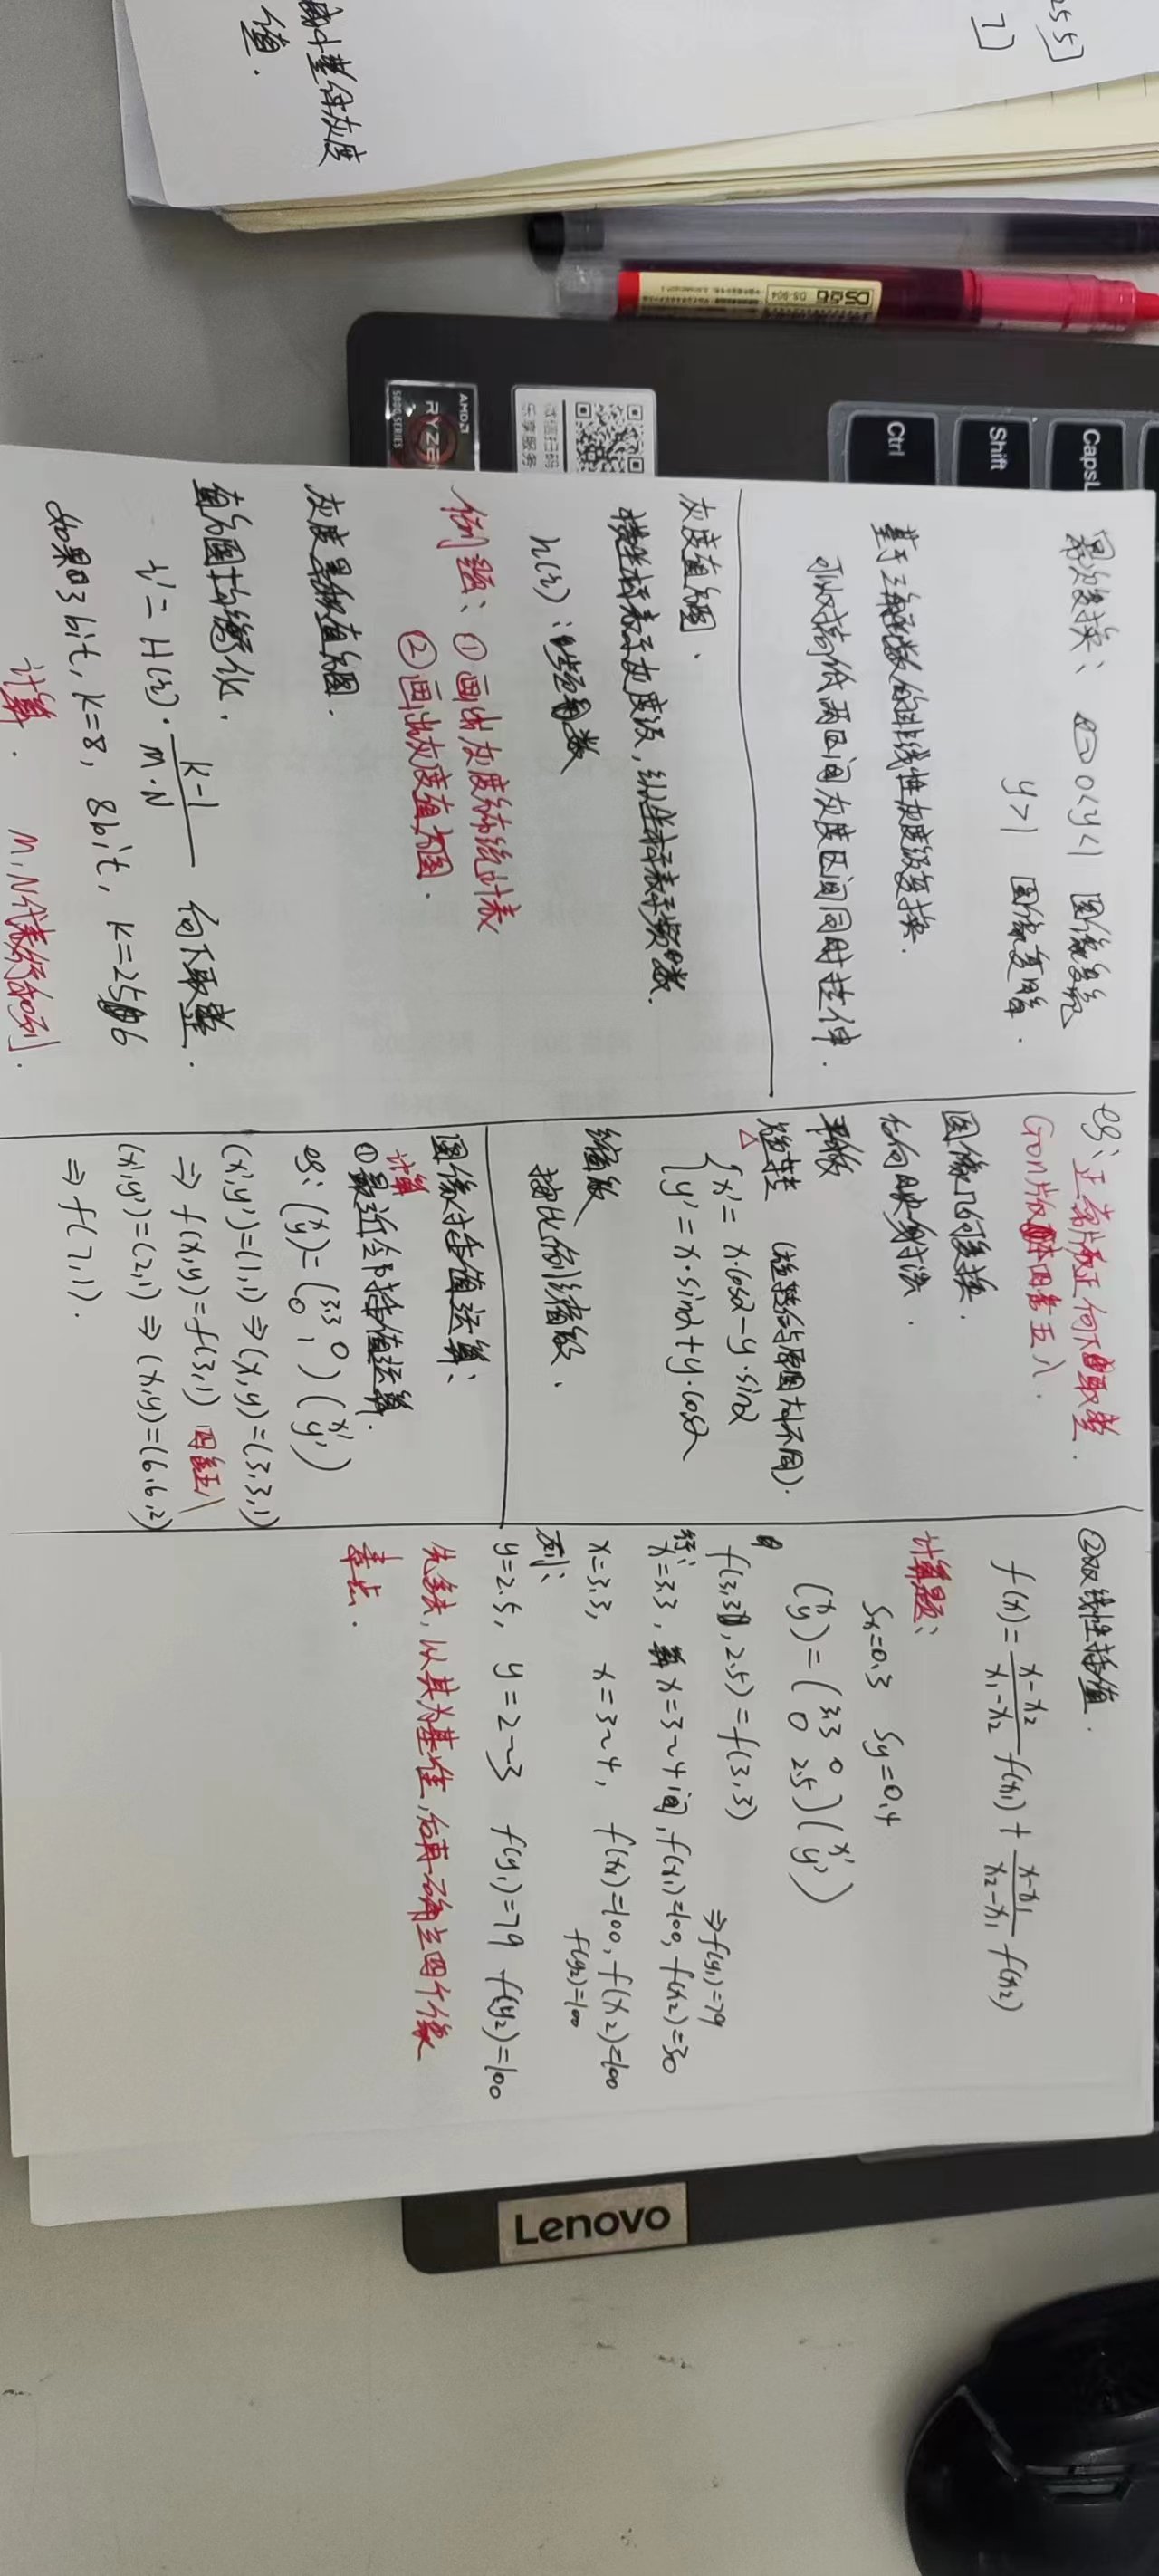 255]
7]
减小整体灰度
值.
CapsL
Shift
Ctrl
微信扫码
乐享服务
AMD
RYZEN
5000 SERIES
Lenovo
幂次变换: 0<γ<1 图像变亮
γ>1 图像变暗.
基于三角函数的非线性灰度级变换.
可以对高低两区间灰度区间同时拉伸.
灰度直方图.
横坐标表示灰度级,纵坐标表示频数.
h(i):频数
例题: ①画出灰度分布统计表
②画出灰度直方图.
灰度累积直方图.
直方图均衡化.
i'=H(i)·\frac{K-1}{M·N} 向下取整.
如果3bit, K=8, 8bit, K=256
计算. M,N代表行和列.
eg: 正常版正向下取整.
Gon版本四舍五入.
图像几何变换.
后向映射法.
平移
旋转 (旋转后与原图大小不同).
△
{x'=x·cosα-y·sinα
y'=x·sinα+y·cosα
缩放
按比例缩放.
图像插值运算:
计算
①最近邻插值运算.
eg: (x y)=(3.3 0 0 1)(x' y')
(x',y')=(1,1)⇒(x,y)=(3.3,1)
⇒f(x,y)=f(3,1) 四舍五入
(x',y')=(2,1)⇒(x,y)=(6.6,2)
⇒f(7,1).
②双线性插值.
f(x)=\frac{x-x₂}{x₁-x₂}f(x₁)+\frac{x-x₁}{x₂-x₁}f(x₂)
计算题:
Sx=0.3 Sy=0.4
(x y)=(3.3 0 0 2.5)(x' y')
f(3.3,2.5)=f(3,3)
⇒f(y₁)=79
行:
x=3.3, 算x=3~4间,f(x₁)=100, f(x₂)=30
x=3.3, x=3~4, f(x₁)=100, f(x₂)=100
f(y₂)=100
列:
y=2.5, y=2~3 f(y₁)=79 f(y₂)=100
先舍去,以其为基准,后再确立四个像
素点.